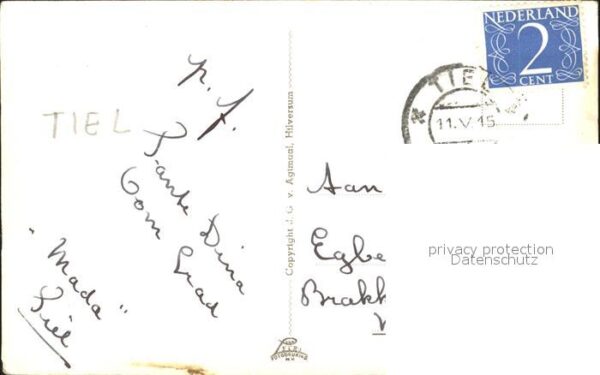 NEDERLAND
2
CENT
TIEL
11.V.15
p. f.
TIEL
Tante Dina
Oom Graad
"Mada"
Tiel
Copyright J. G. v. Agtmaal, Hilversum
Aan
Egbe
Brakk
privacy protection
Datenschutz
FOTODRUKING